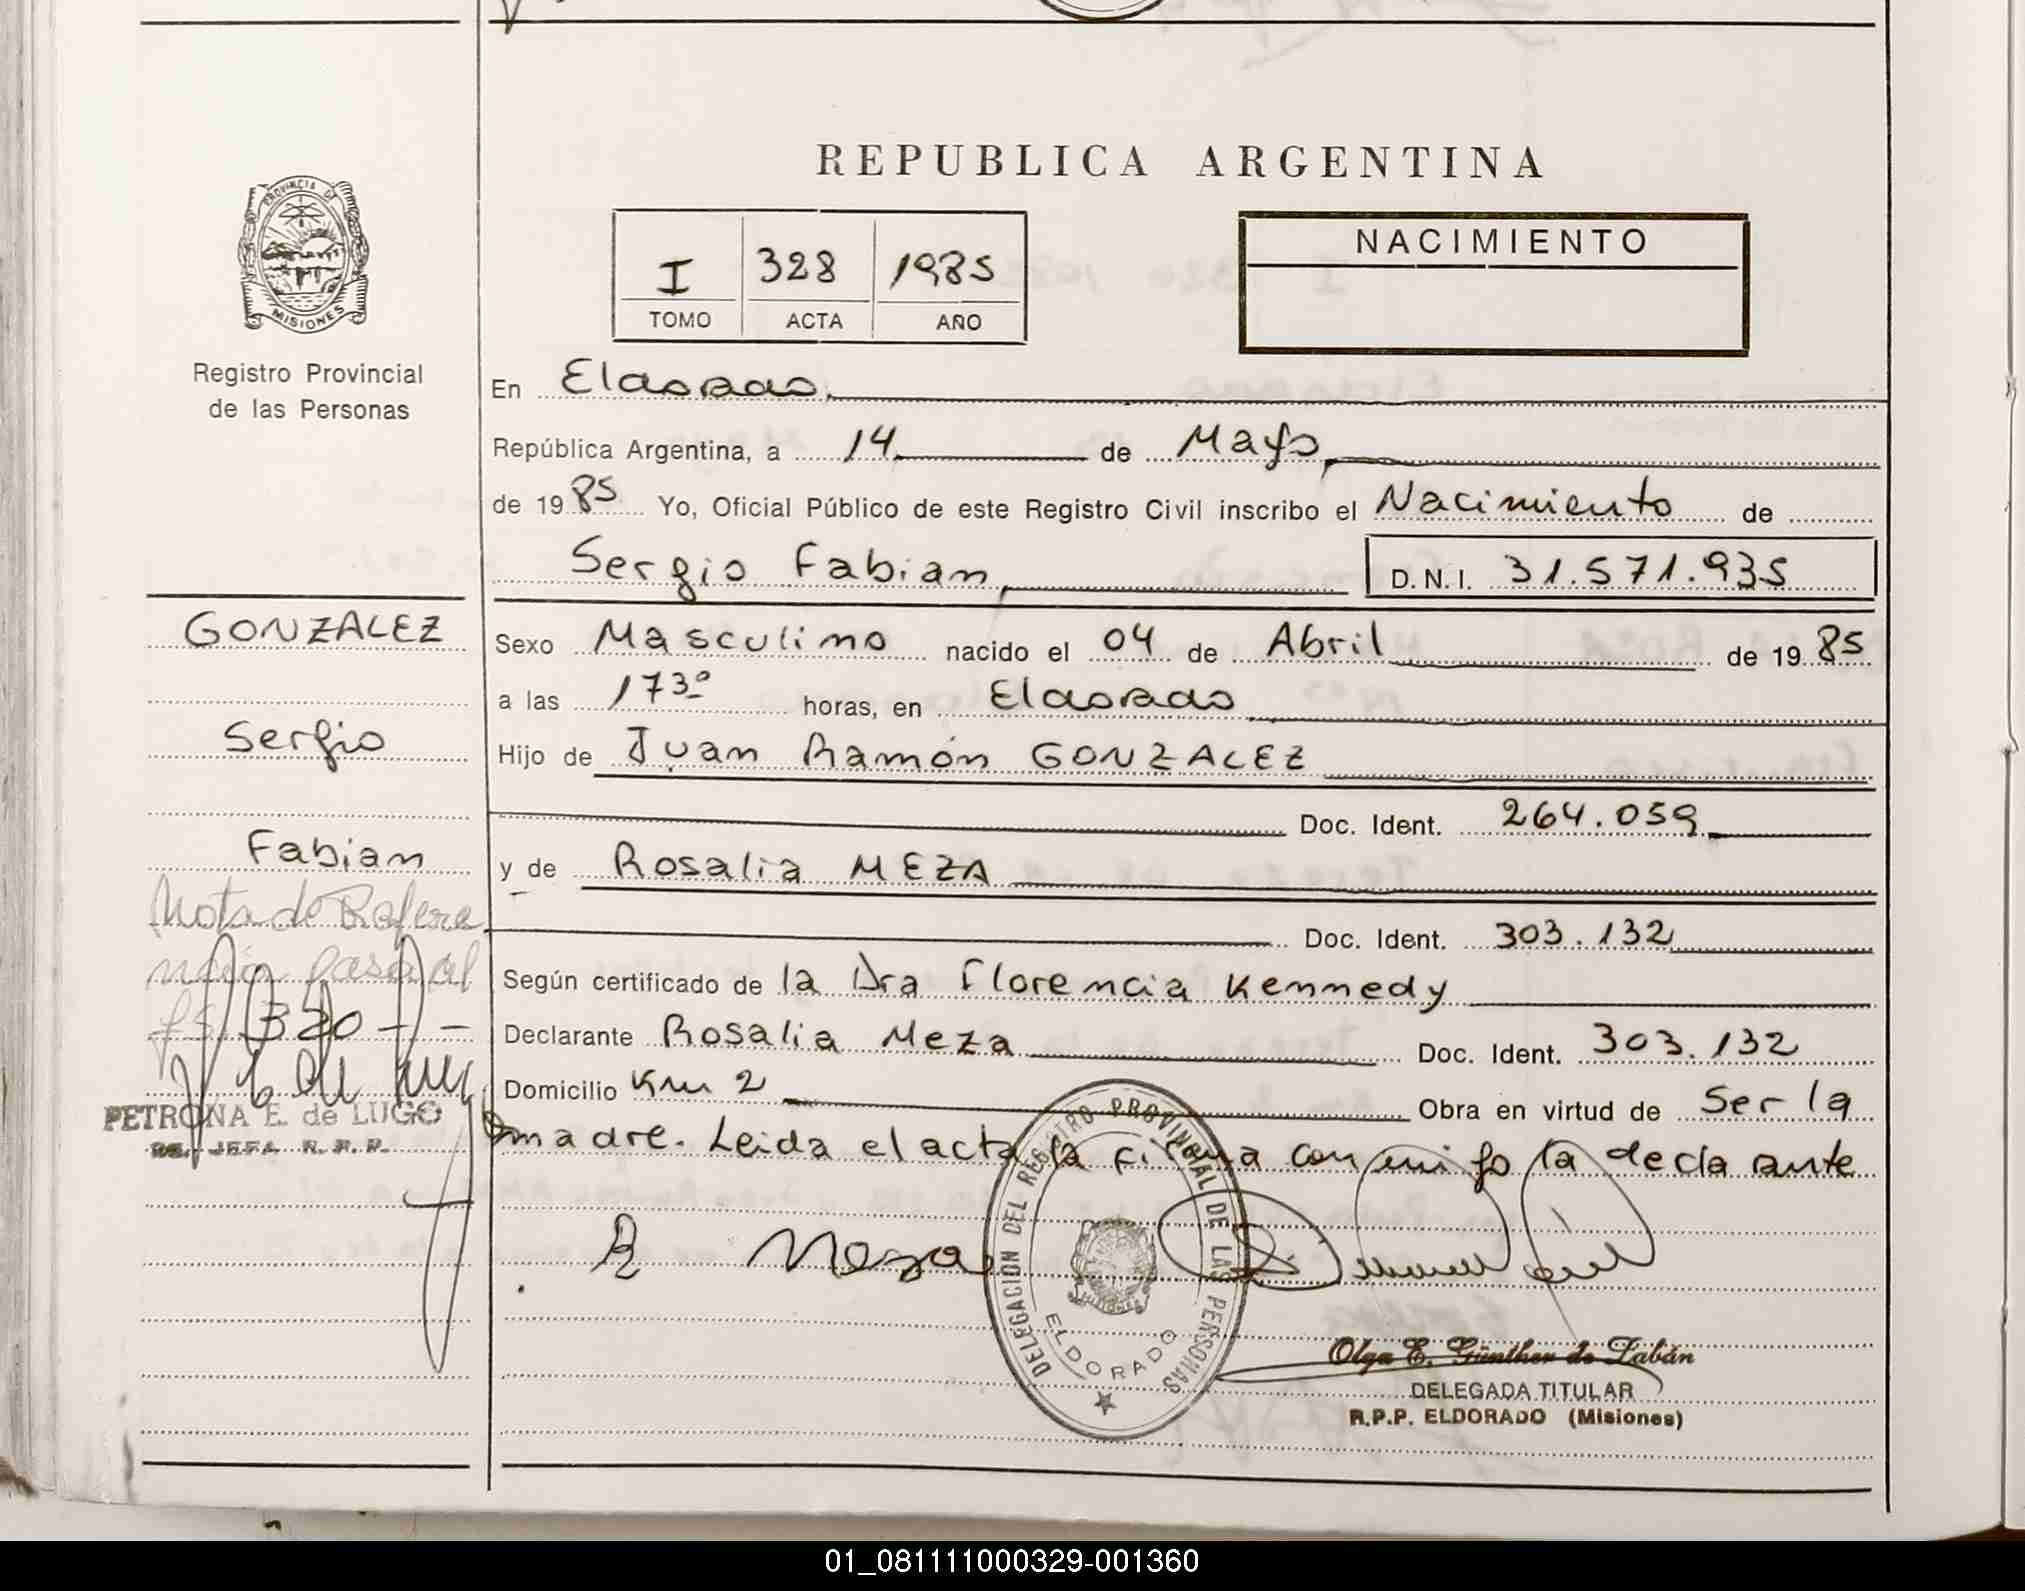 REPUBLICA ARGENTINA
PROVINCIA DE
MISIONES
Registro Provincial
de las Personas
I 328 1985
TOMO ACTA AÑO
NACIMIENTO
En Eldorado.
República Argentina, a 14 de Mayo,
de 1985 Yo, Oficial Público de este Registro Civil inscribo el Nacimiento de
Sergio Fabian, D.N.I. 31.571.935
GONZALEZ
Sergio
Fabian
Nota de Refere
ncia pasa al
fs 320
PETRONA E. de LUGO
JEFA R.P.P.
Sexo Masculino nacido el 04 de Abril de 1985
a las 1730 horas, en Eldorado
Hijo de Juan Ramón GONZALEZ
Doc. Ident. 264.059
y de Rosalia MEZA
Doc. Ident. 303.132
Según certificado de la Dra Florencia Kennedy
Declarante Rosalia Meza Doc. Ident. 303.132
Domicilio Km 2 Obra en virtud de Ser la
madre. Leida el acta la firma conmigo la declarante
R Meza
DELEGACION DEL REGISTRO PROVINCIAL DE LAS PERSONAS
MISIONES
ELDORADO
Olga E. Günther de Zabán
DELEGADA TITULAR
R.P.P. ELDORADO (Misiones)
01_081111000329-001360